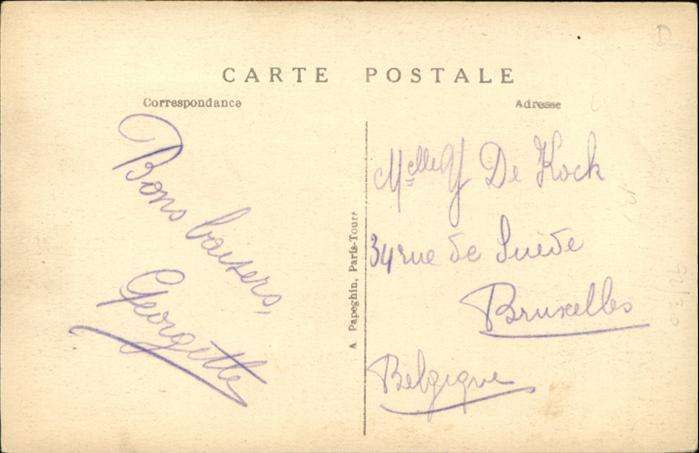 CARTE POSTALE
Correspondance
Adresse
Bons baisers,
Georgette
A Papeghin, Paris-Tours
Melle Y De Kock
34 rue de Suède
Bruxelles
Belgique